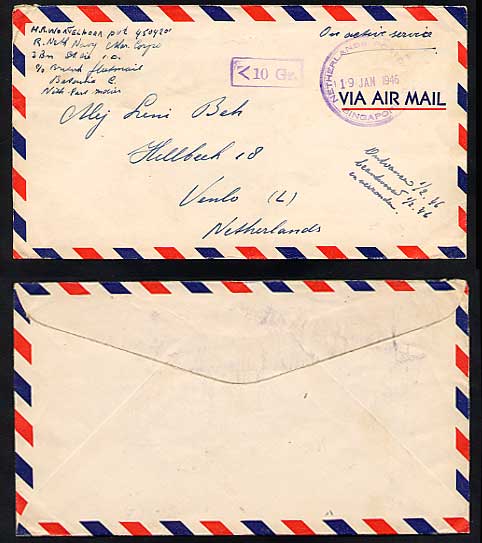 H.R. Wortelboer pvt 4504201
R. Neth Navy Mar Corps
3 Bn
c/o British fleetmail
Batavia C.
Neth East Indies
On active service
< 10 Gr.
NETHERLANDS
19 JAN 1946
SINGAPO
VIA AIR MAIL
Mej Leni Bek
Hellbeek 18
Venlo (L)
Netherlands
Ontvangen 1/2. 46
beantwoord 1/2. 46